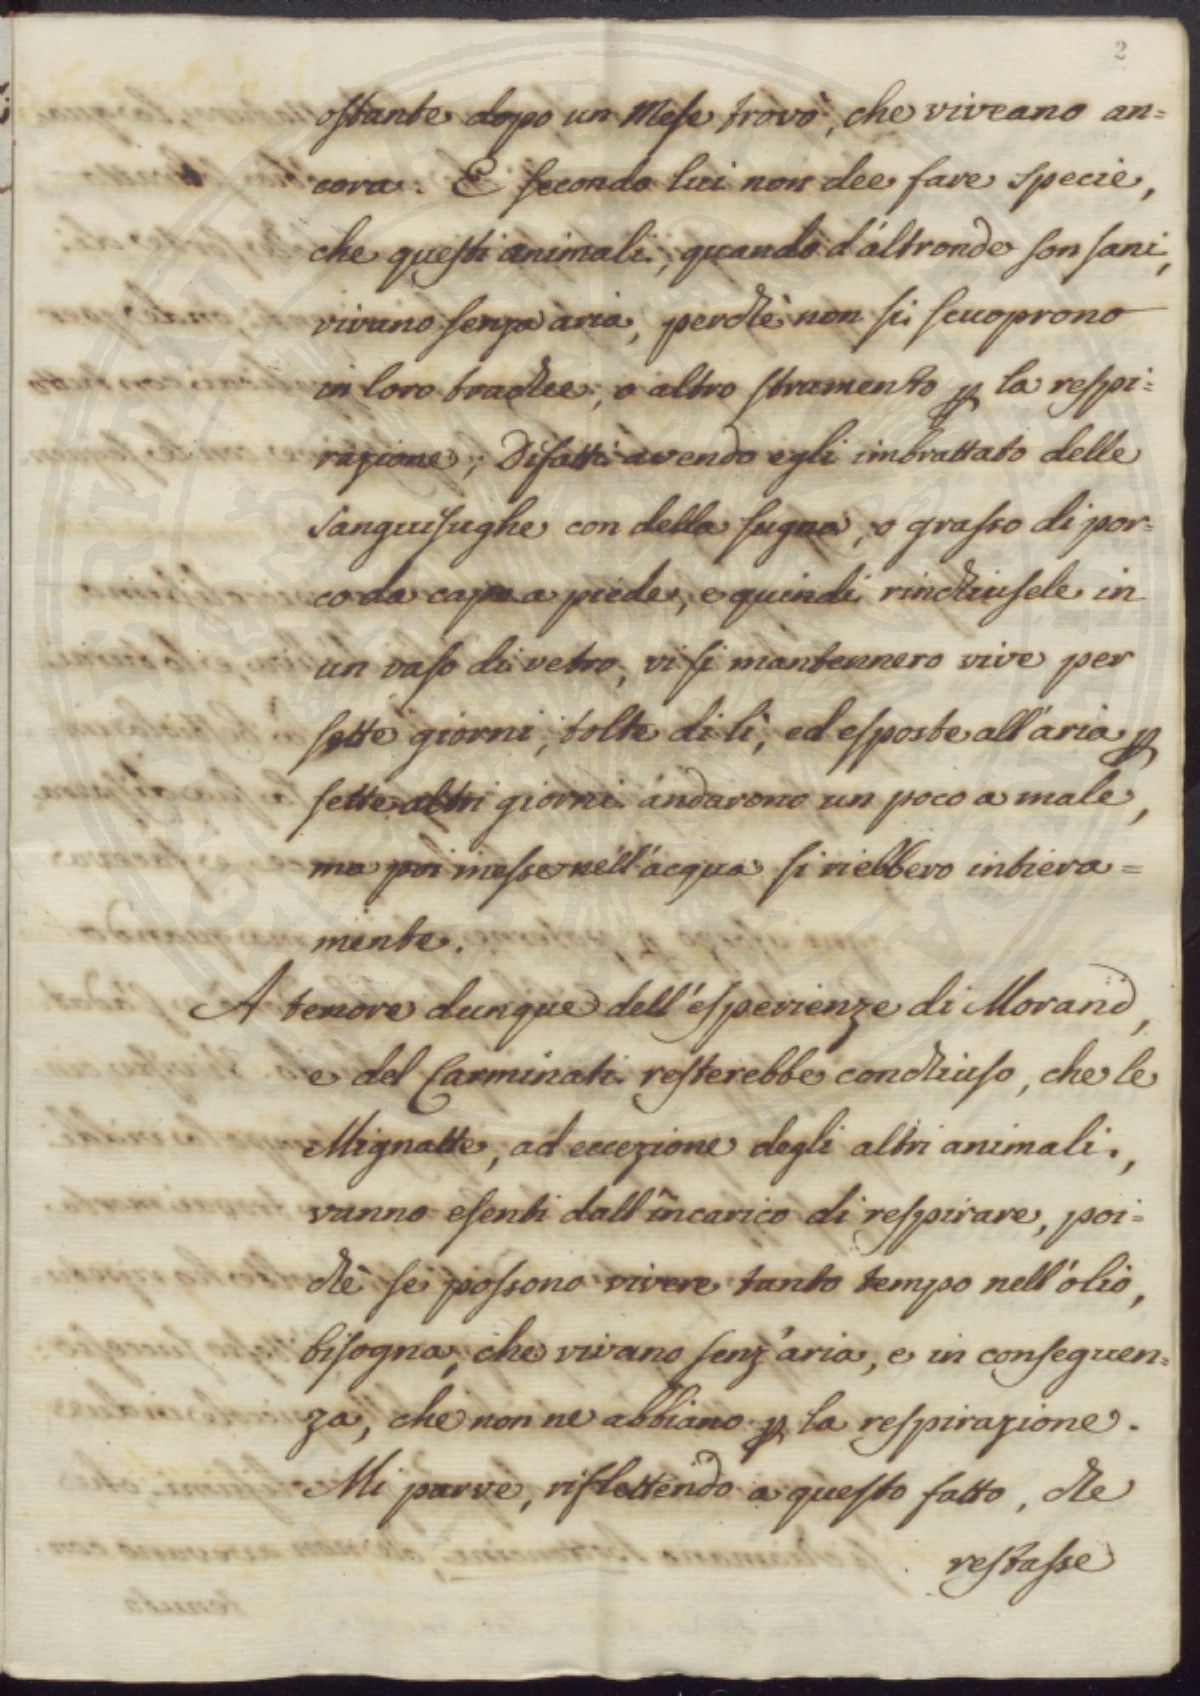 2
ostante dopo un Mese trovò, che viveano an=
cora. E secondo lui non dee fare specie,
che questi animali, quando d'altronde son sani,
vivano senza aria, perchè non si scuoprono
in loro trachee, o altro stramento p la respi=
razione; Difatti avendo egli imbrattato delle
Sanguisughe con della sugna, o grasso di por=
co da capo a piede, e quindi rinchiusele in
un vaso di vetro, vi si mantennero vive per
sette giorni, tolte di lì, ed esposte all'aria p
sette altri giorni andarono un poco a male,
ma poi messe nell'acqua si riebbero intiera=
mente.
A tenore dunque dell'esperienze di Morand,
e del Carminati resterebbe conchiuso, che le
Mignatte, ad eccezione degli altri animali,
vanno esenti dall'incarico di respirare, poi=
chè se possono vivere tanto tempo nell'olio,
bisogna, che vivano senz'aria, e in conseguen=
za, che non ne abbiano p la respirazione.
Mi parve, riflettendo a questo fatto, che
restasse